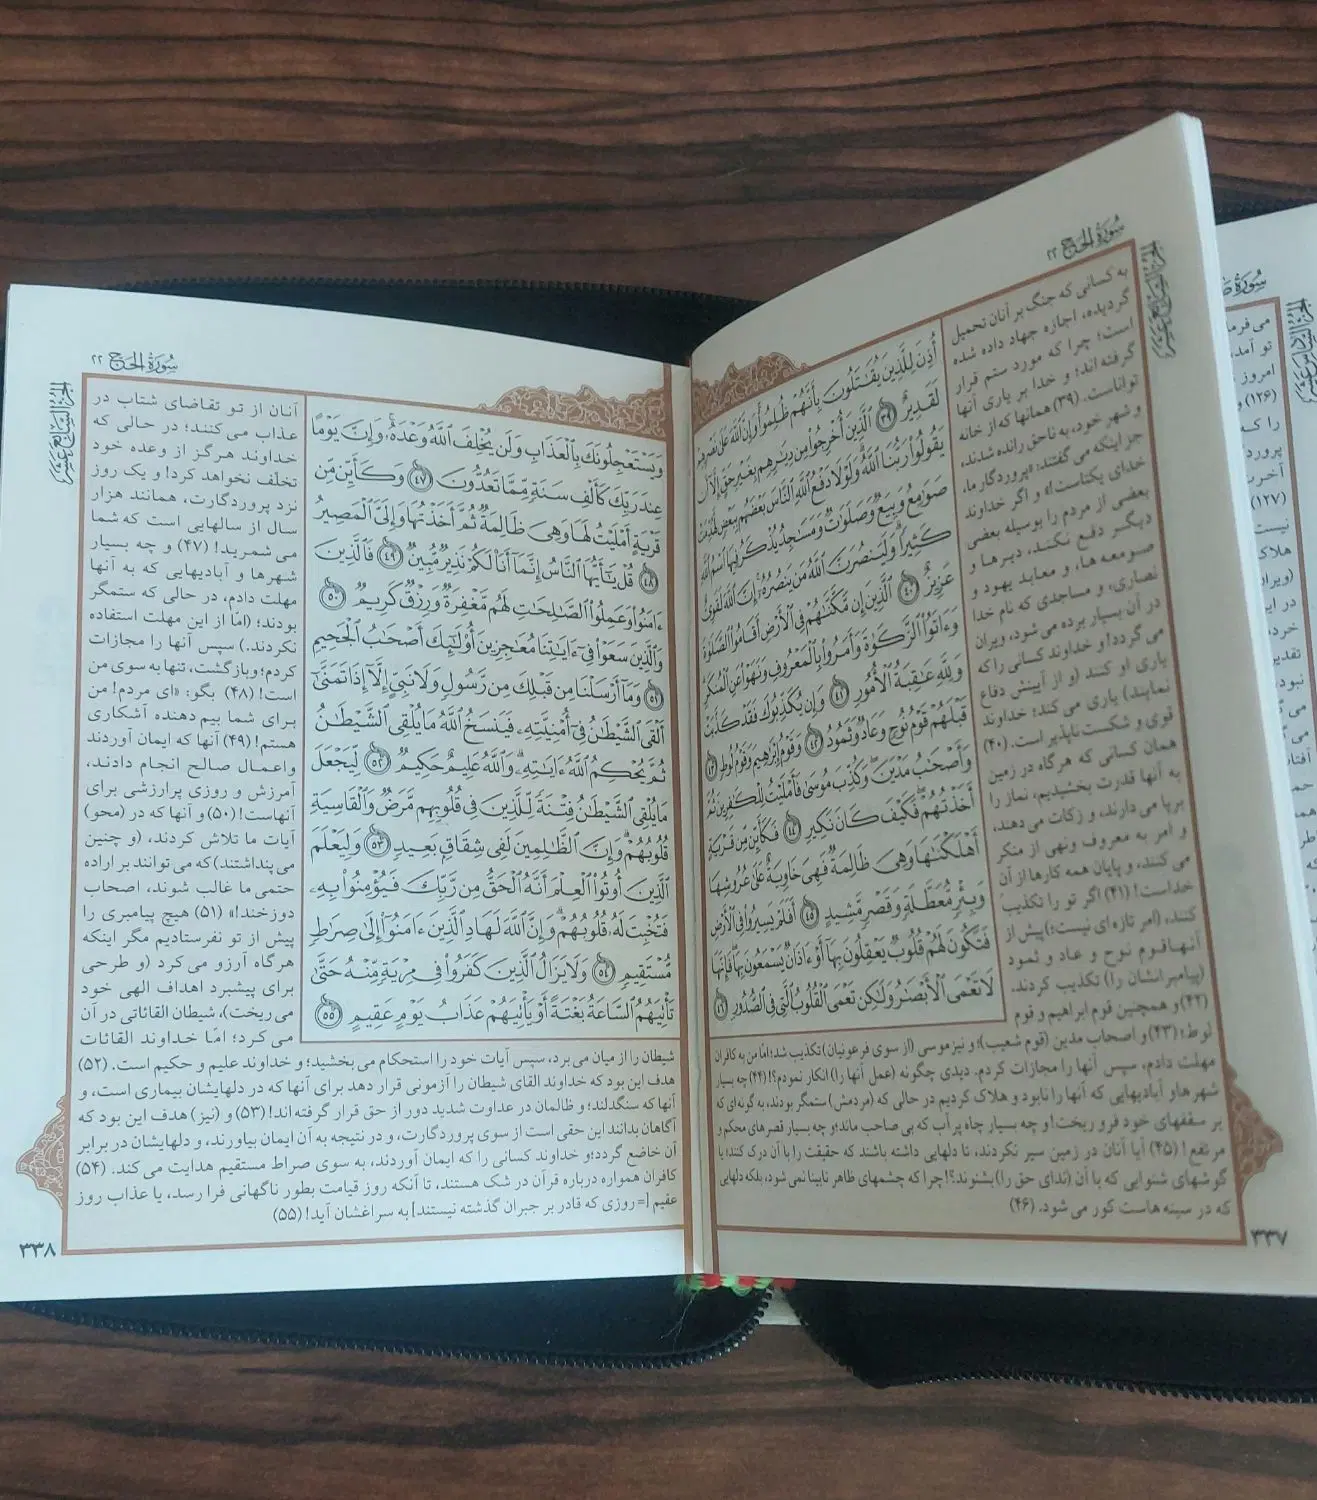 سُورَةُ الحَجِّ ٢٢
الجزء السابع عشر
أُذِنَ لِلَّذِينَ يُقَٰتَلُونَ بِأَنَّهُمْ ظُلِمُوا۟ وَإِنَّ ٱللَّهَ عَلَىٰ نَصْرِهِمْ
لَقَدِيرٌ ﴿٣٩﴾ ٱلَّذِينَ أُخْرِجُوا۟ مِن دِيَٰرِهِم بِغَيْرِ حَقٍّ إِلَّآ أَن
يَقُولُوا۟ رَبُّنَا ٱللَّهُ وَلَوْلَا دَفْعُ ٱللَّهِ ٱلنَّاسَ بَعْضَهُم بِبَعْضٍ لَّهُدِّمَتْ
صَوَٰمِعُ وَبِيَعٌ وَصَلَوَٰتٌ وَمَسَٰجِدُ يُذْكَرُ فِيهَا ٱسْمُ ٱللَّهِ
كَثِيرًا وَلَيَنصُرَنَّ ٱللَّهُ مَن يَنصُرُهُۥٓ إِنَّ ٱللَّهَ لَقَوِىٌّ
عَزِيزٌ ﴿٤٠﴾ ٱلَّذِينَ إِن مَّكَّنَّٰهُمْ فِى ٱلْأَرْضِ أَقَامُوا۟ ٱلصَّلَوٰةَ
وَءَاتَوُا۟ ٱلزَّكَوٰةَ وَأَمَرُوا۟ بِٱلْمَعْرُوفِ وَنَهَوْا۟ عَنِ ٱلْمُنكَرِ
وَلِلَّهِ عَٰقِبَةُ ٱلْأُمُورِ ﴿٤١﴾ وَإِن يُكَذِّبُوكَ فَقَدْ كَذَّبَتْ
قَبْلَهُمْ قَوْمُ نُوحٍ وَعَادٌ وَثَمُودُ ﴿٤٢﴾ وَقَوْمُ إِبْرَٰهِيمَ وَقَوْمُ لُوطٍ ﴿٤٣﴾
وَأَصْحَٰبُ مَدْيَنَ وَكُذِّبَ مُوسَىٰ فَأَمْلَيْتُ لِلْكَٰفِرِينَ ثُمَّ
أَخَذْتُهُمْ فَكَيْفَ كَانَ نَكِيرِ ﴿٤٤﴾ فَكَأَيِّن مِّن قَرْيَةٍ
أَهْلَكْنَٰهَا وَهِىَ ظَالِمَةٌ فَهِىَ خَاوِيَةٌ عَلَىٰ عُرُوشِهَا
وَبِئْرٍ مُّعَطَّلَةٍ وَقَصْرٍ مَّشِيدٍ ﴿٤٥﴾ أَفَلَمْ يَسِيرُوا۟ فِى ٱلْأَرْضِ
فَتَكُونَ لَهُمْ قُلُوبٌ يَعْقِلُونَ بِهَآ أَوْ ءَاذَانٌ يَسْمَعُونَ بِهَا فَإِنَّهَا
لَا تَعْمَى ٱلْأَبْصَٰرُ وَلَٰكِن تَعْمَى ٱلْقُلُوبُ ٱلَّتِى فِى ٱلصُّدُورِ ﴿٤٦﴾
به کسانی که جنگ بر آنان تحمیل
گردیده، اجازه جهاد داده شده
است؛ چرا که مورد ستم قرار
گرفته‌اند؛ و خدا بر یاری آنها
تواناست. (۳۹) همانها که از خانه
و شهر خود، به ناحق رانده شدند،
جز اینکه می گفتند: «پروردگار ما،
خدای یکتاست!» و اگر خداوند
بعضی از مردم را بوسیله بعضی
دیگر دفع نکند، دیرها و
صومعه ها، و معابد یهود و
نصاری، و مساجدی که نام خدا
در آن بسیار برده می شود، ویران
می گردد! و خداوند کسانی را که
یاری او کنند (و از آیینش دفاع
نمایند) یاری می کند؛ خداوند
قوی و شکست ناپذیر است. (۴۰)
همان کسانی که هر گاه در زمین
به آنها قدرت بخشیدیم، نماز را
برپا می دارند، و زکات می دهند،
و امر به معروف و نهی از منکر
می کنند، و پایان همه کارها از آن
خداست! (۴۱) اگر تو را تکذیب
کنند، (امر تازه‌ای نیست؛) پیش از
آنها قوم نوح و عاد و ثمود
(پیامبرانشان را) تکذیب کردند.
(۴۲) و همچنین قوم ابراهیم و قوم
لوط؛ (۴۳) و اصحاب مدین (قوم شعیب)؛ و نیز موسی (از سوی فرعونیان) تکذیب شد؛ اما من به کافران
مهلت دادم، سپس آنها را مجازات کردم. دیدی چگونه (عمل آنها را) انکار نمودم؟! (۴۴) چه بسیار
شهرها و آبادیهایی که آنها را نابود و هلاک کردیم در حالی که (مردمش) ستمگر بودند، به گونه‌ای که
بر سقفهای خود فرو ریخت! و چه بسیار چاه پر آب که بی صاحب ماند؛ و چه بسیار قصرهای محکم و
مرتفع! (۴۵) آیا آنان در زمین سیر نکردند، تا دلهایی داشته باشند که حقیقت را با آن درک کنند؛ یا
گوشهای شنوایی که با آن (ندای حق را) بشنوند؟! چرا که چشمهای ظاهر نابینا نمی شود، بلکه دلهایی
که در سینه هاست کور می شود. (۴۶)
۳۳۷
سُورَةُ الحَجِّ ٢٢
الجزء السابع عشر
وَيَسْتَعْجِلُونَكَ بِٱلْعَذَابِ وَلَن يُخْلِفَ ٱللَّهُ وَعْدَهُۥ وَإِنَّ يَوْمًا
عِندَ رَبِّكَ كَأَلْفِ سَنَةٍ مِّمَّا تَعُدُّونَ ﴿٤٧﴾ وَكَأَيِّن مِّن
قَرْيَةٍ أَمْلَيْتُ لَهَا وَهِىَ ظَالِمَةٌ ثُمَّ أَخَذْتُهَا وَإِلَىَّ ٱلْمَصِيرُ
﴿٤٨﴾ قُلْ يَٰٓأَيُّهَا ٱلنَّاسُ إِنَّمَآ أَنَا۠ لَكُمْ نَذِيرٌ مُّبِينٌ ﴿٤٩﴾ فَٱلَّذِينَ
ءَامَنُوا۟ وَعَمِلُوا۟ ٱلصَّٰلِحَٰتِ لَهُم مَّغْفِرَةٌ وَرِزْقٌ كَرِيمٌ ﴿٥٠﴾
وَٱلَّذِينَ سَعَوْا۟ فِىٓ ءَايَٰتِنَا مُعَٰجِزِينَ أُو۟لَٰٓئِكَ أَصْحَٰبُ ٱلْجَحِيمِ
﴿٥١﴾ وَمَآ أَرْسَلْنَا مِن قَبْلِكَ مِن رَّسُولٍ وَلَا نَبِىٍّ إِلَّآ إِذَا تَمَنَّىٰٓ
أَلْقَى ٱلشَّيْطَٰنُ فِىٓ أُمْنِيَّتِهِۦ فَيَنسَخُ ٱللَّهُ مَا يُلْقِى ٱلشَّيْطَٰنُ
ثُمَّ يُحْكِمُ ٱللَّهُ ءَايَٰتِهِۦ وَٱللَّهُ عَلِيمٌ حَكِيمٌ ﴿٥٢﴾ لِّيَجْعَلَ
مَا يُلْقِى ٱلشَّيْطَٰنُ فِتْنَةً لِّلَّذِينَ فِى قُلُوبِهِم مَّرَضٌ وَٱلْقَاسِيَةِ
قُلُوبُهُمْ وَإِنَّ ٱلظَّٰلِمِينَ لَفِى شِقَاقٍۭ بَعِيدٍ ﴿٥٣﴾ وَلِيَعْلَمَ
ٱلَّذِينَ أُوتُوا۟ ٱلْعِلْمَ أَنَّهُ ٱلْحَقُّ مِن رَّبِّكَ فَيُؤْمِنُوا۟ بِهِۦ
فَتُخْبِتَ لَهُۥ قُلُوبُهُمْ وَإِنَّ ٱللَّهَ لَهَادِ ٱلَّذِينَ ءَامَنُوٓا۟ إِلَىٰ صِرَٰطٍ
مُّسْتَقِيمٍ ﴿٥٤﴾ وَلَا يَزَالُ ٱلَّذِينَ كَفَرُوا۟ فِى مِرْيَةٍ مِّنْهُ حَتَّىٰ
تَأْتِيَهُمُ ٱلسَّاعَةُ بَغْتَةً أَوْ يَأْتِيَهُمْ عَذَابُ يَوْمٍ عَقِيمٍ ﴿٥٥﴾
آنان از تو تقاضای شتاب در
عذاب می کنند؛ در حالی که
خداوند هرگز از وعده خود
تخلّف نخواهد کرد! و یک روز
نزد پروردگارت، همانند هزار
سال از سالهایی است که شما
می شمرید! (۴۷) و چه بسیار
شهرها و آبادیهایی که به آنها
مهلت دادم، در حالی که ستمگر
بودند؛ (امّا از این مهلت استفاده
نکردند.) سپس آنها را مجازات
کردم؛ و بازگشت، تنها به سوی من
است! (۴۸) بگو: «ای مردم! من
برای شما بیم دهنده آشکاری
هستم! (۴۹) آنها که ایمان آوردند
و اعمال صالح انجام دادند،
آمرزش و روزی پرارزشی برای
آنهاست! (۵۰) و آنها که در (محو)
آیات ما تلاش کردند، (و چنین
می پنداشتند) که می توانند بر اراده
حتمی ما غالب شوند، اصحاب
دوزخند!» (۵۱) هیچ پیامبری را
پیش از تو نفرستادیم مگر اینکه
هرگاه آرزو می کرد (و طرحی
برای پیشبرد اهداف الهی خود
می ریخت)، شیطان القائاتی در آن
می کرد؛ امّا خداوند القائات
شیطان را از میان می برد، سپس آیات خود را استحکام می بخشید؛ و خداوند علیم و حکیم است. (۵۲)
هدف این بود که خداوند القای شیطان را آزمونی قرار دهد برای آنها که در دلهایشان بیماری است، و
آنها که سنگدلند؛ و ظالمان در عداوت شدید دور از حق قرار گرفته‌اند! (۵۳) و (نیز) هدف این بود که
آگاهان بدانند این حقی است از سوی پروردگارت، و در نتیجه به آن ایمان بیاورند، و دلهایشان در برابر
آن خاضع گردد؛ و خداوند کسانی را که ایمان آوردند، به سوی صراط مستقیم هدایت می کند. (۵۴)
کافران همواره درباره قرآن در شک هستند، تا آنکه روز قیامت بطور ناگهانی فرا رسد، یا عذاب روز
عقیم [= روزی که قادر بر جبران گذشته نیستند] به سراغشان آید! (۵۵)
۳۳۸